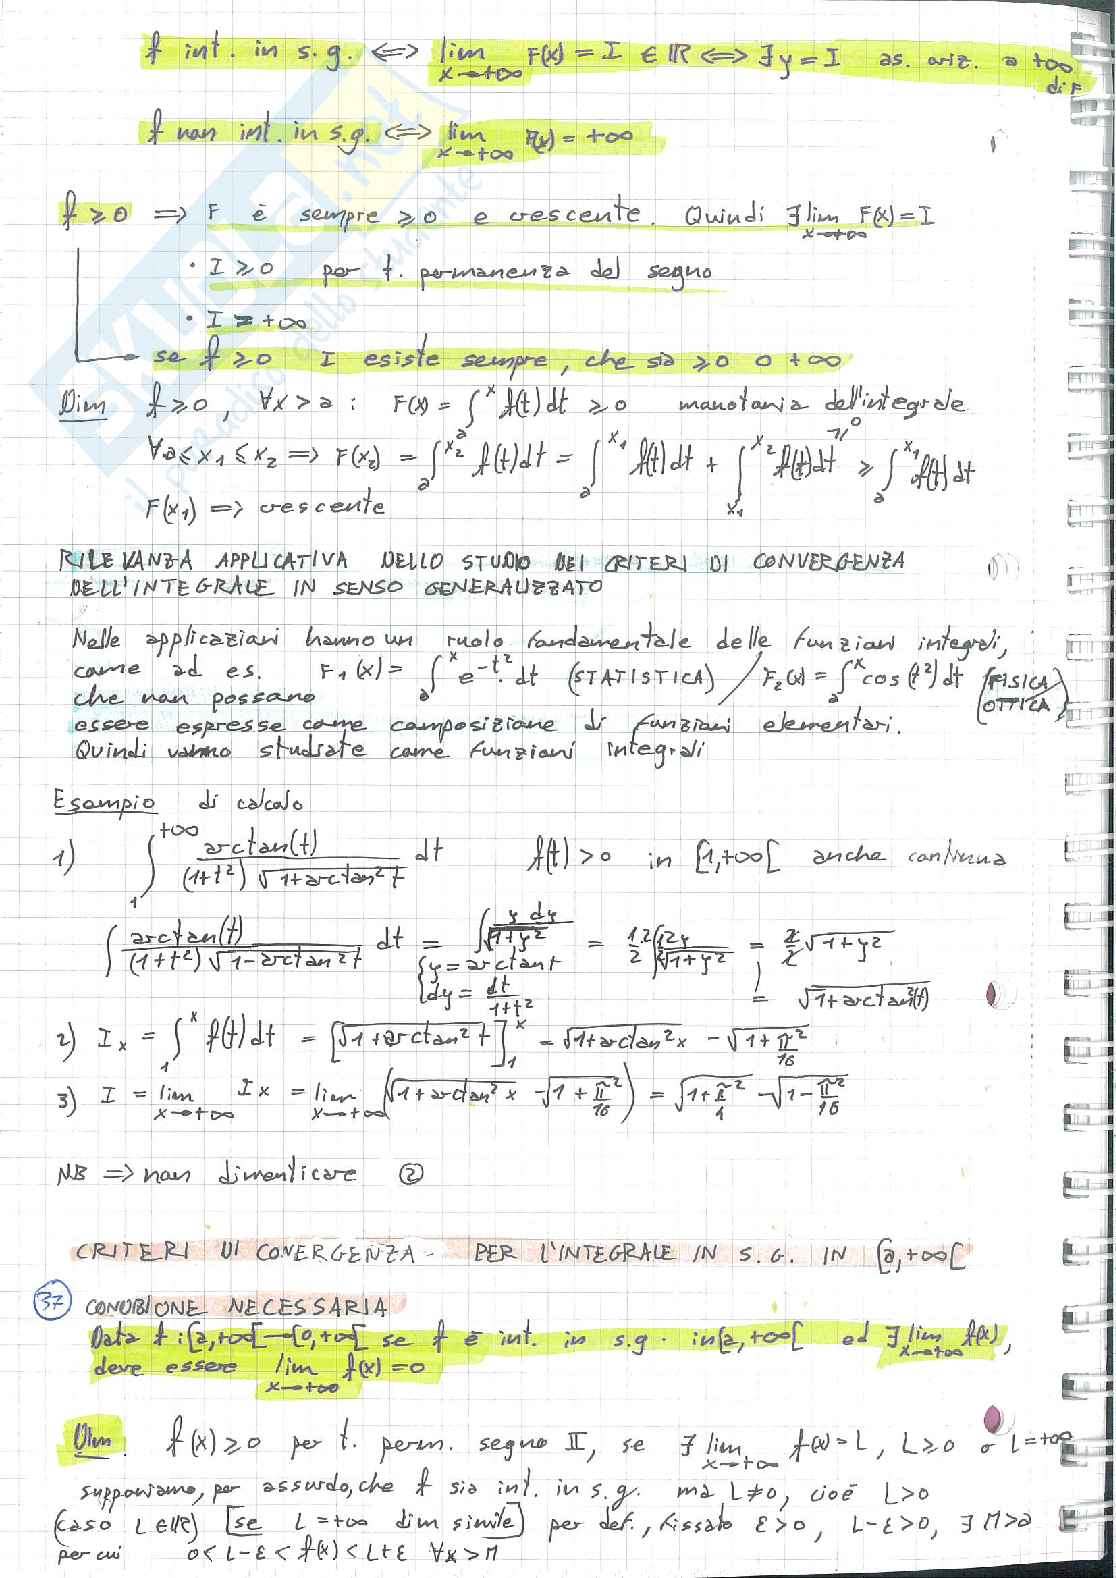 f int. in s.g. ⟺ lim x→+∞ F(x) = I ∈ ℝ ⟺ ∃ y = I as. oriz. a +∞ di F
f non int. in s.g. ⟺ lim x→+∞ F(x) = +∞
f ≥ 0 ⟹ F è sempre ≥ 0 e crescente. Quindi ∃ lim x→+∞ F(x) = I
· I ≥ 0 per t. permanenza del segno
· I = +∞
se f ≥ 0 I esiste sempre, che sia ≥ 0 o +∞
Dim f ≥ 0, ∀x > a : F(x) = ∫_a^x f(t) dt ≥ 0 monotonia dell'integrale
∀ a ≤ x₁ ≤ x₂ ⟹ F(x₂) = ∫_a^x₂ f(t) dt = ∫_a^x₁ f(t) dt + ∫_x₁^x₂ f(t) dt ≥ ∫_a^x₁ f(t) dt
≥ 0
F(x₁) ⟹ crescente
RILEVANZA APPLICATIVA DELLO STUDIO DEI CRITERI DI CONVERGENZA
DELL'INTEGRALE IN SENSO GENERALIZZATO
Nelle applicazioni hanno un ruolo fondamentale delle funzioni integrali,
come ad es. F₁(x) = ∫_a^x e^-t² dt (STATISTICA) / F₂(x) = ∫_a^x cos(t²) dt (FISICA OTTICA)
che non possono
essere espresse come composizione di funzioni elementari.
Quindi vanno studiate come funzioni integrali
Esempio di calcolo
1) ∫_1^+∞ arctan(t) / ((1+t²) √(1+arctan² t)) dt f(t) > 0 in [1,+∞[ anche continua
∫ arctan(t) / ((1+t²) √(1-arctan² t)) dt = ∫ y dy / √(1+y²) = 1·2/2 ∫ 2y / 2√(1+y²) = 2/2 √(1+y²)
{ y = arctan t
{ dy = dt / 1+t²
= √(1+arctan²(t))
2) I x = ∫_1^x f(t) dt = [√(1+arctan² t)]_1^x = √(1+arctan² x) - √(1+π²/16)
3) I = lim x→+∞ I x = lim x→+∞ (√(1+arctan² x) - √(1+π²/16)) = √(1+π²/4) - √(1-π²/16)
NB ⟹ non dimenticare ②
CRITERI DI CONERGENZA - PER L'INTEGRALE IN S.G. IN [a,+∞[
37 CONDIZIONE NECESSARIA
Data f : [a,+∞[ → [0,+∞[ se f è int. in s.g. in [a,+∞[ ed ∃ lim x→+∞ f(x),
deve essere lim x→+∞ f(x) = 0
Dim. f(x) ≥ 0 per t. perm. segno II, se ∃ lim x→+∞ f(x) = L, L ≥ 0 o L = +∞
supponiamo, per assurdo, che f sia int. in s.g. ma L ≠ 0, cioè L > 0
(caso L ∈ ℝ) [se L = +∞ dim simile] per def., fissato ε > 0, L-ε > 0, ∃ M > a
per cui 0 < L-ε < f(x) < L+ε ∀x > M